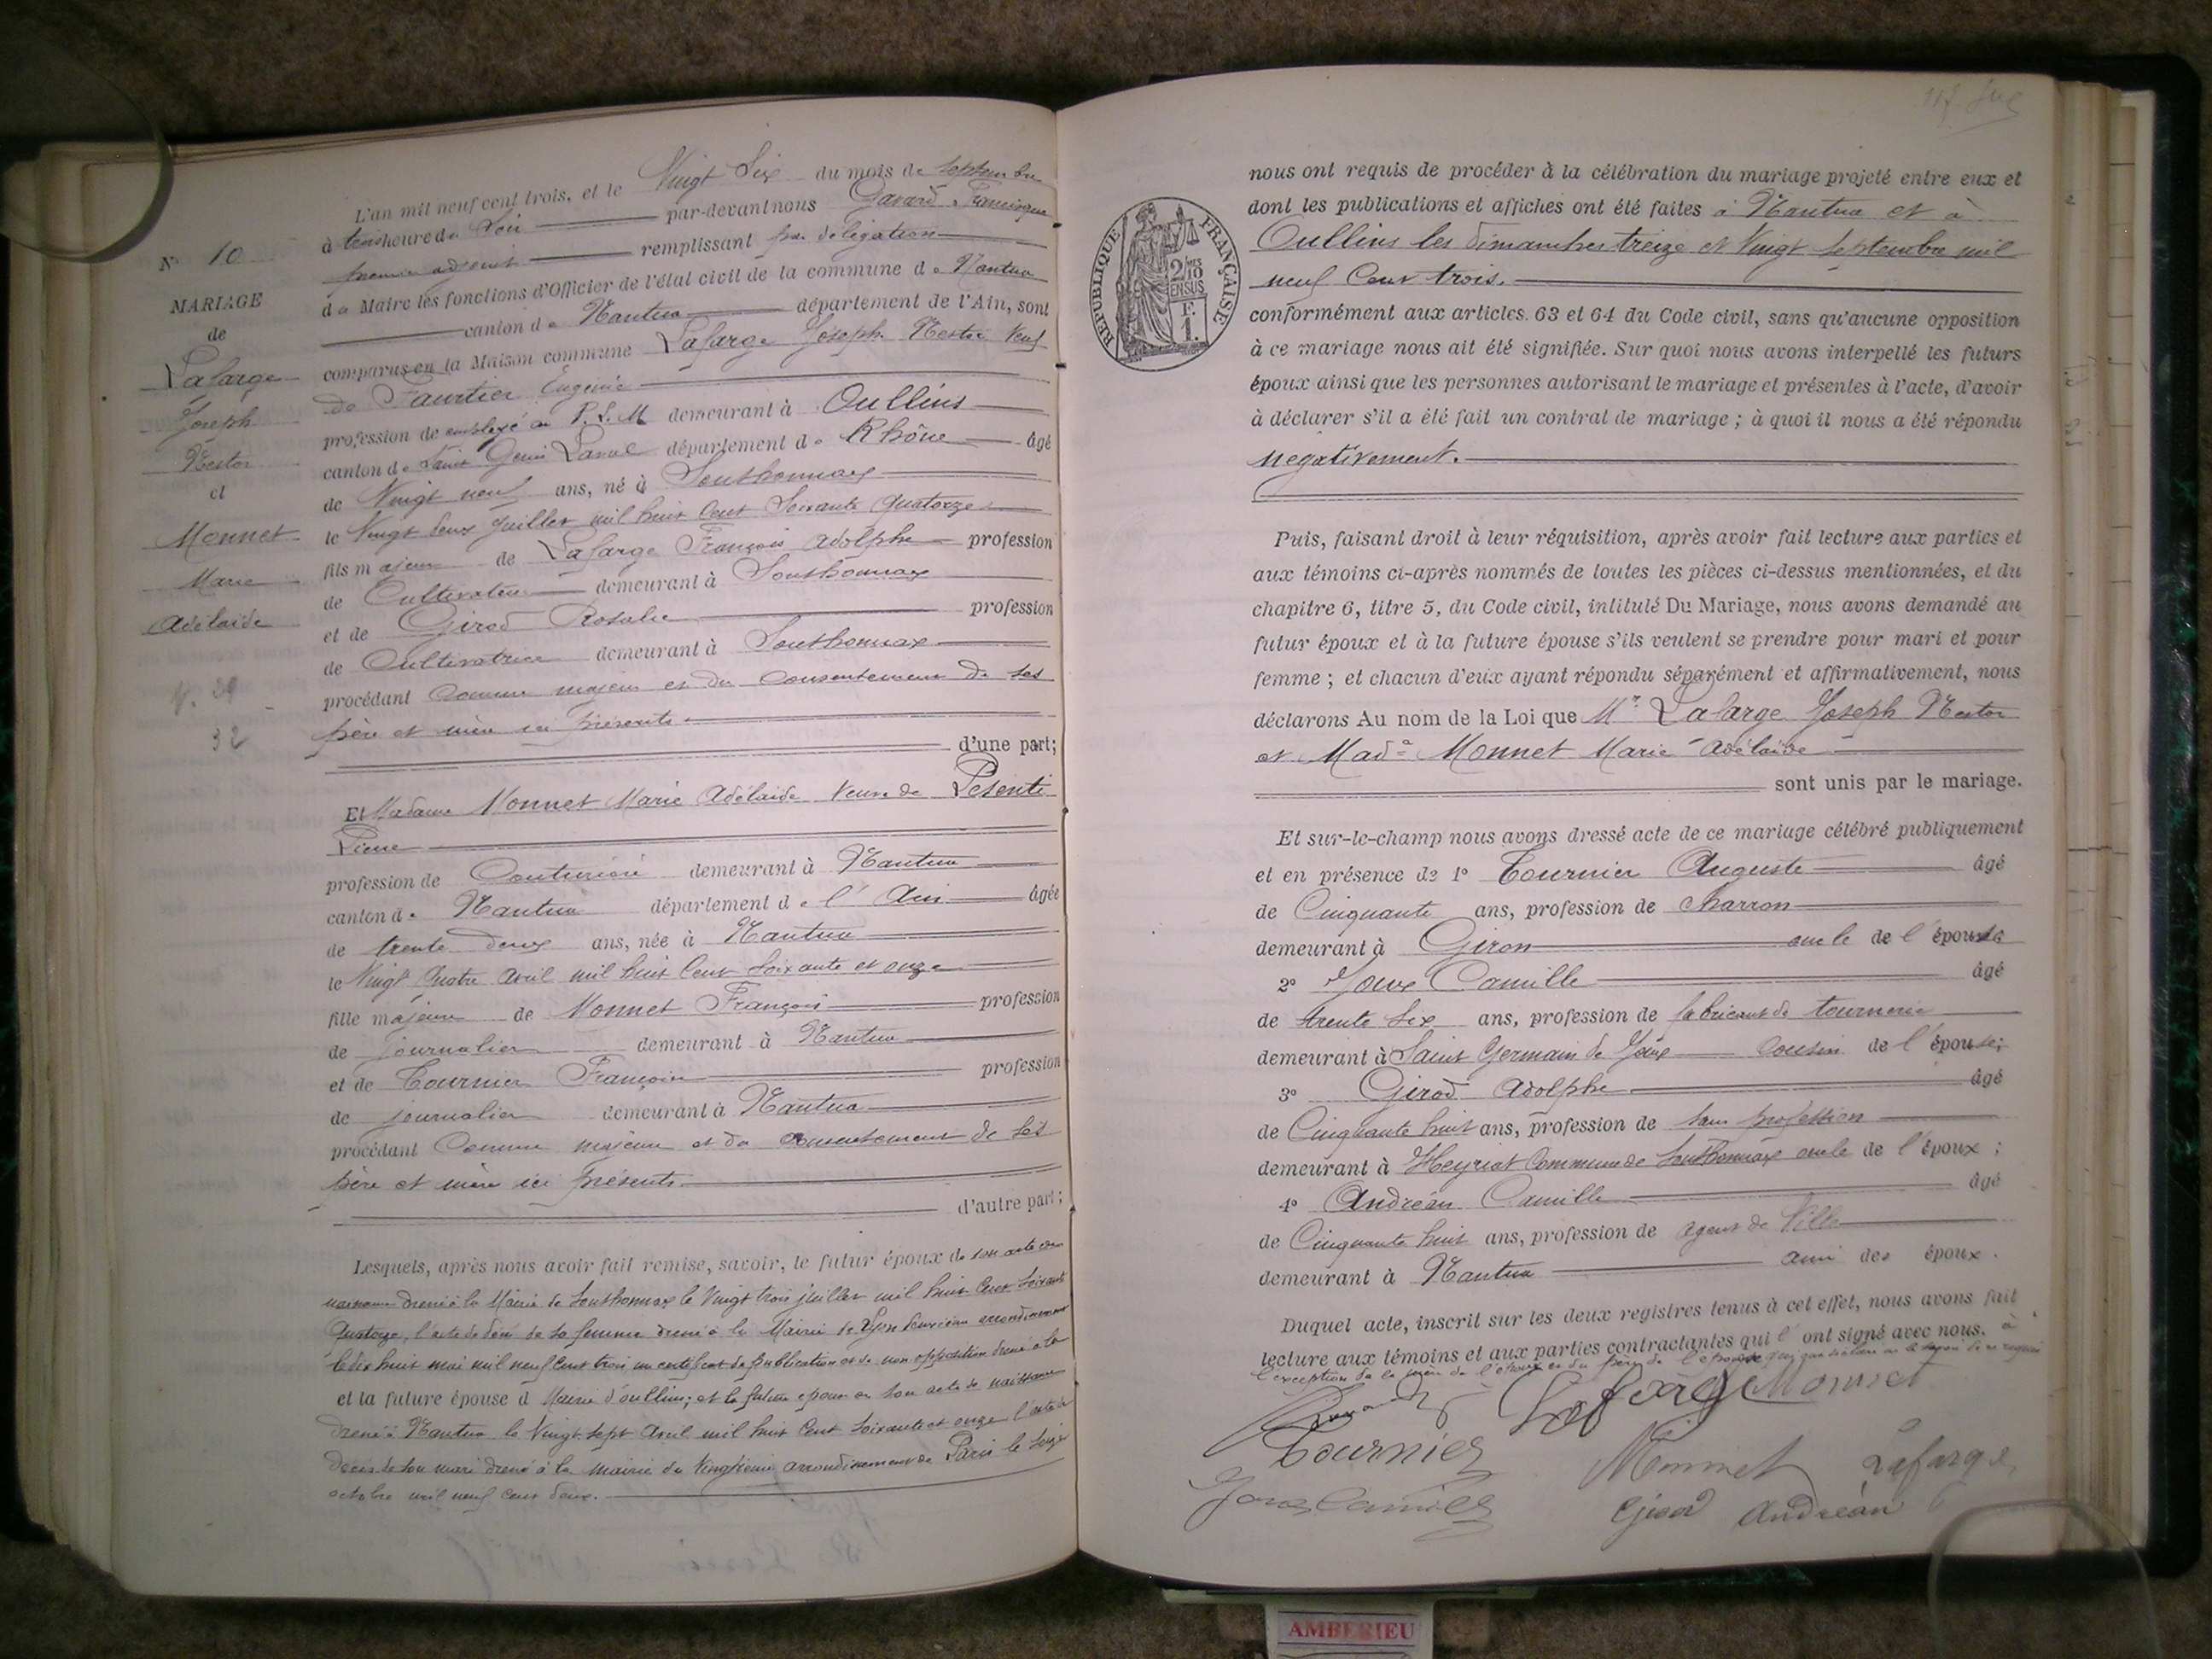 N° 10
MARIAGE
de
Lafarge
Joseph
Nestor
et
Monnet
Marie
Adélaïde
32
L'an mil neuf cent trois, et le Vingt Six du mois de septembre
à trois heure du Soir par-devant nous Gavard, Francisque
premier adjoint remplissant par délégation
du Maire les fonctions d'Officier de l'état civil de la commune de Nantua
canton de Nantua département de l'Ain, sont
comparus en la Maison commune Lafarge Joseph Nestor Veuf
de Eugénie
profession de employé au P.L.M demeurant à Oullins
canton de Saint Genis Laval département de Rhône âgé
de Vingt neuf ans, né à Sonthonnax
le Vingt deux juillet mil huit Cent Soixante Quatorze
fils majeur de Lafarge François Adolphe profession
de Cultivateur demeurant à Sonthonnax
et de Girod Rosalie profession
de Cultivatrice demeurant à Sonthonnax
procédant Comme majeur et du Consentement de ses
père et mère ici présents
d'une part;
Et Madame Monnet Marie Adélaïde Veuve de Pesenti
Pierre
profession de Couturière demeurant à Nantua
canton de Nantua département de l'Ain âgée
de trente deux ans, née à Nantua
le Vingt Quatre Avril mil huit Cent Soixante et onze
fille majeure de Monnet François profession
de journalier demeurant à Nantua
et de Tournier Françoise profession
de journalier demeurant à Nantua
procédant Comme majeure et du Consentement de ses
père et mère ici présents
d'autre part;
Lesquels, après nous avoir fait remise, savoir, le futur époux de son acte de
naissance dressé à la Mairie de Sonthonnax le Vingt trois juillet mil huit Cent Soixante
Quatorze, l'acte de décès de sa femme dressé à la Mairie de Lyon deuxième arrondissement
le dix huit mai mil neuf Cent trois un certificat de publication et de non opposition dressé à la
et la future épouse d Mairie d'Oullins; et la future épouse de son acte de naissance
dressé à Nantua le Vingt sept Avril mil huit Cent Soixante et onze l'acte de
Décès de son mari dressé à la mairie du Vingtième arrondissement de Paris le
octobre mil neuf cent deux.
nous ont requis de procéder à la célébration du mariage projeté entre eux et
dont les publications et affiches ont été faites à Nantua et à
Oullins les dimanches treize et Vingt septembre mil
neuf Cent trois.
RÉPUBLIQUE FRANÇAISE
2/10 MES
EN SUS
F.
1.
conformément aux articles. 63 et 64 du Code civil, sans qu'aucune opposition
à ce mariage nous ait été signifiée. Sur quoi nous avons interpellé les futurs
époux ainsi que les personnes autorisant le mariage et présentes à l'acte, d'avoir
à déclarer s'il a été fait un contrat de mariage ; à quoi il nous a été répondu
négativement.
Puis, faisant droit à leur réquisition, après avoir fait lecture aux parties et
aux témoins ci-après nommés de toutes les pièces ci-dessus mentionnées, et du
chapitre 6, titre 5, du Code civil, intitulé Du Mariage, nous avons demandé au
futur époux et à la future épouse s'ils veulent se prendre pour mari et pour
femme ; et chacun d'eux ayant répondu séparément et affirmativement, nous
déclarons Au nom de la Loi que Mr Lafarge Joseph Nestor
et Made Monnet Marie Adélaïde
sont unis par le mariage.
Et sur-le-champ nous avons dressé acte de ce mariage célébré publiquement
et en présence de 1° Tournier Auguste âgé
de Cinquante ans, profession de Charron
demeurant à Giron oncle de l'épouse
2° Joux Camille âgé
de trente six ans, profession de fabricant de tournerie
demeurant à Saint Germain de Joux Cousin de l'épouse;
3° Girod Adolphe âgé
de Cinquante huit ans, profession de sans profession
demeurant à Heyriat Commune de Sonthonnax oncle de l'époux ;
4° Andréan Camille âgé
de Cinquante huit ans, profession de agent de Ville
demeurant à Nantua ami des époux.
Duquel acte, inscrit sur les deux registres tenus à cet effet, nous avons fait
lecture aux témoins et aux parties contractantes qui l'ont signé avec nous. à
l'exception de la mère de l'époux et du père de l'épouse
Lafarge Monnet
Tournier Monnet Lafarge
Joux Camille Girod Andréan
AMBERIEU